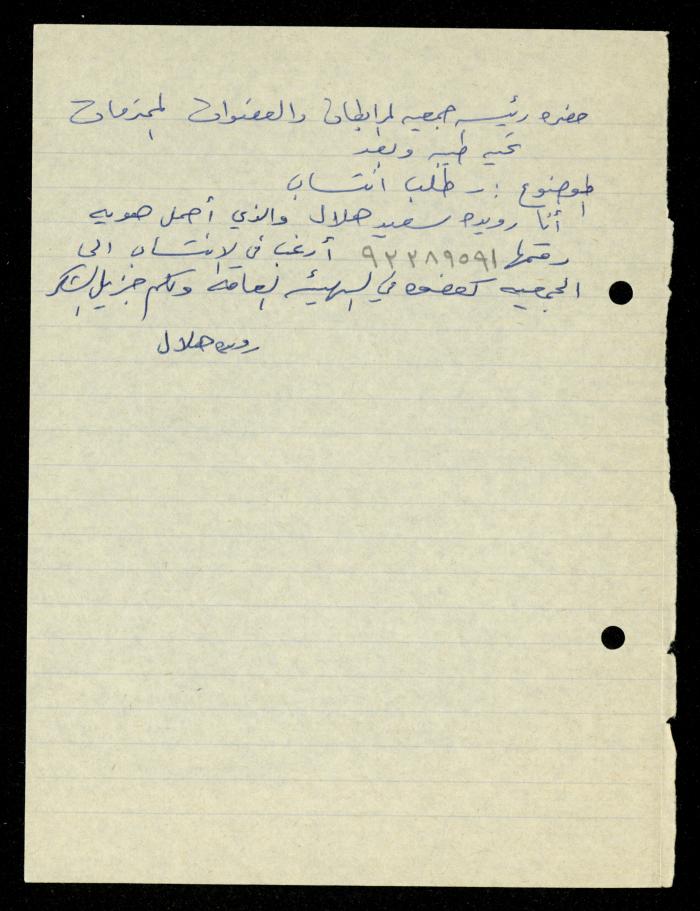 حضره رئيسه جمعيه المرابطات والعضوات المحترمات
تحيه طيبه وبعد
الموضوع :- طلب انتساب
أنا رويده سعيد هلال والذي أحمل هويه
رقمها ٩٢٢٨٩٥٩١ أرغب في الإنتساب الى
الجمعيه كعضوه في الهيئه العامه ولكم جزيل الشكر
رويده هلال